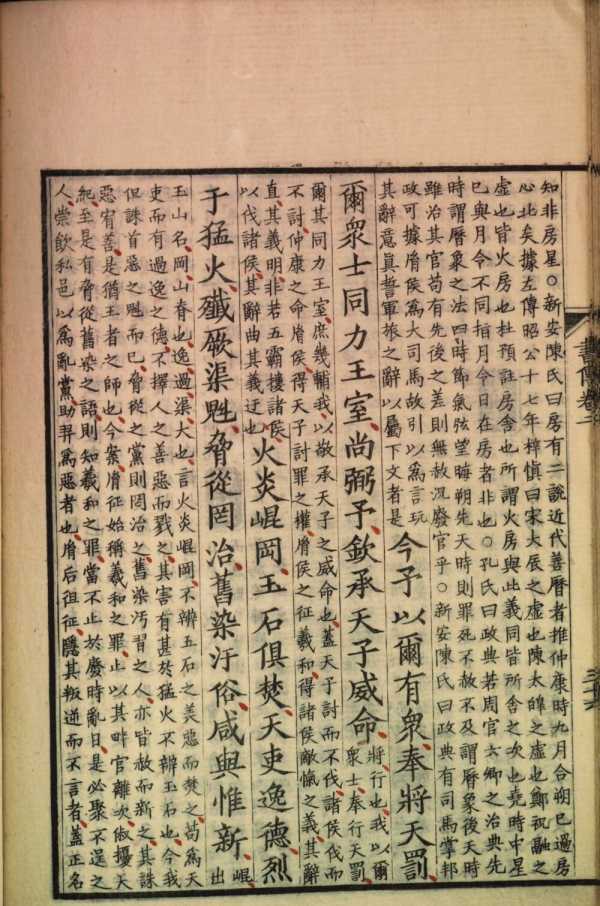 知非房星○新安陳氏曰房有二說近代善曆者推仲康時九月合朔巳過房
心北矣據左傳昭公十七年梓慎曰宋大辰之虛也陳太皥之虛也鄭祝融之
虛也皆火房也杜預註房舍也所謂火房與此義同皆所舍之次也堯時中星
巳與月令不同指月令日在房者非也○孔氏曰政典若周官六卿之治典先
時謂曆象之法四時節氣弦望晦朔先天時則罪死不赦不及謂曆象後天時
雖治其官苟有先後之差則無赦況廢官乎○新安陳氏曰政典有司馬掌邦
政可據胤侯爲大司馬故引以爲言玩
其辭意眞誓軍旅之辭以屬下文者是
今予以爾有衆奉將天罰
爾衆士同力王室尚弼予欽承天子威命
將行也我以爾
衆士奉行天罰
爾其同力王室庶幾輔我以敬承天子之威命也蓋天子討而不伐諸侯伐而
不討仲康之命胤侯得天子討罪之權胤侯之征羲和得諸侯敵愾之義其辭
直其義明非若五霸摟諸侯
以伐諸侯其辭曲其義迂也
火炎崐岡玉石俱焚天吏逸德烈
于猛火殲厥渠魁脅從罔治舊染汙俗咸與惟新
崐
出
玉山名岡山脊也逸過渠大也言火炎崐岡不辨玉石之美惡而焚之苟爲天
吏而有過逸之德不擇人之善惡而戮之其害有甚於猛火不辨玉石也今我
但誅首惡之魁而已脅從之黨則罔治之舊染汙習之人亦皆赦而新之其誅
惡宥善是猶王者之師也今案胤征始稱羲和之罪止以其畔官離次俶擾天
紀至是有脅從舊染之語則知羲和之罪當不止於廢時亂日是必聚不逞之
人崇飲私邑以爲亂黨助羿爲惡者也胤后徂征隱其叛逆而不言者蓋正名